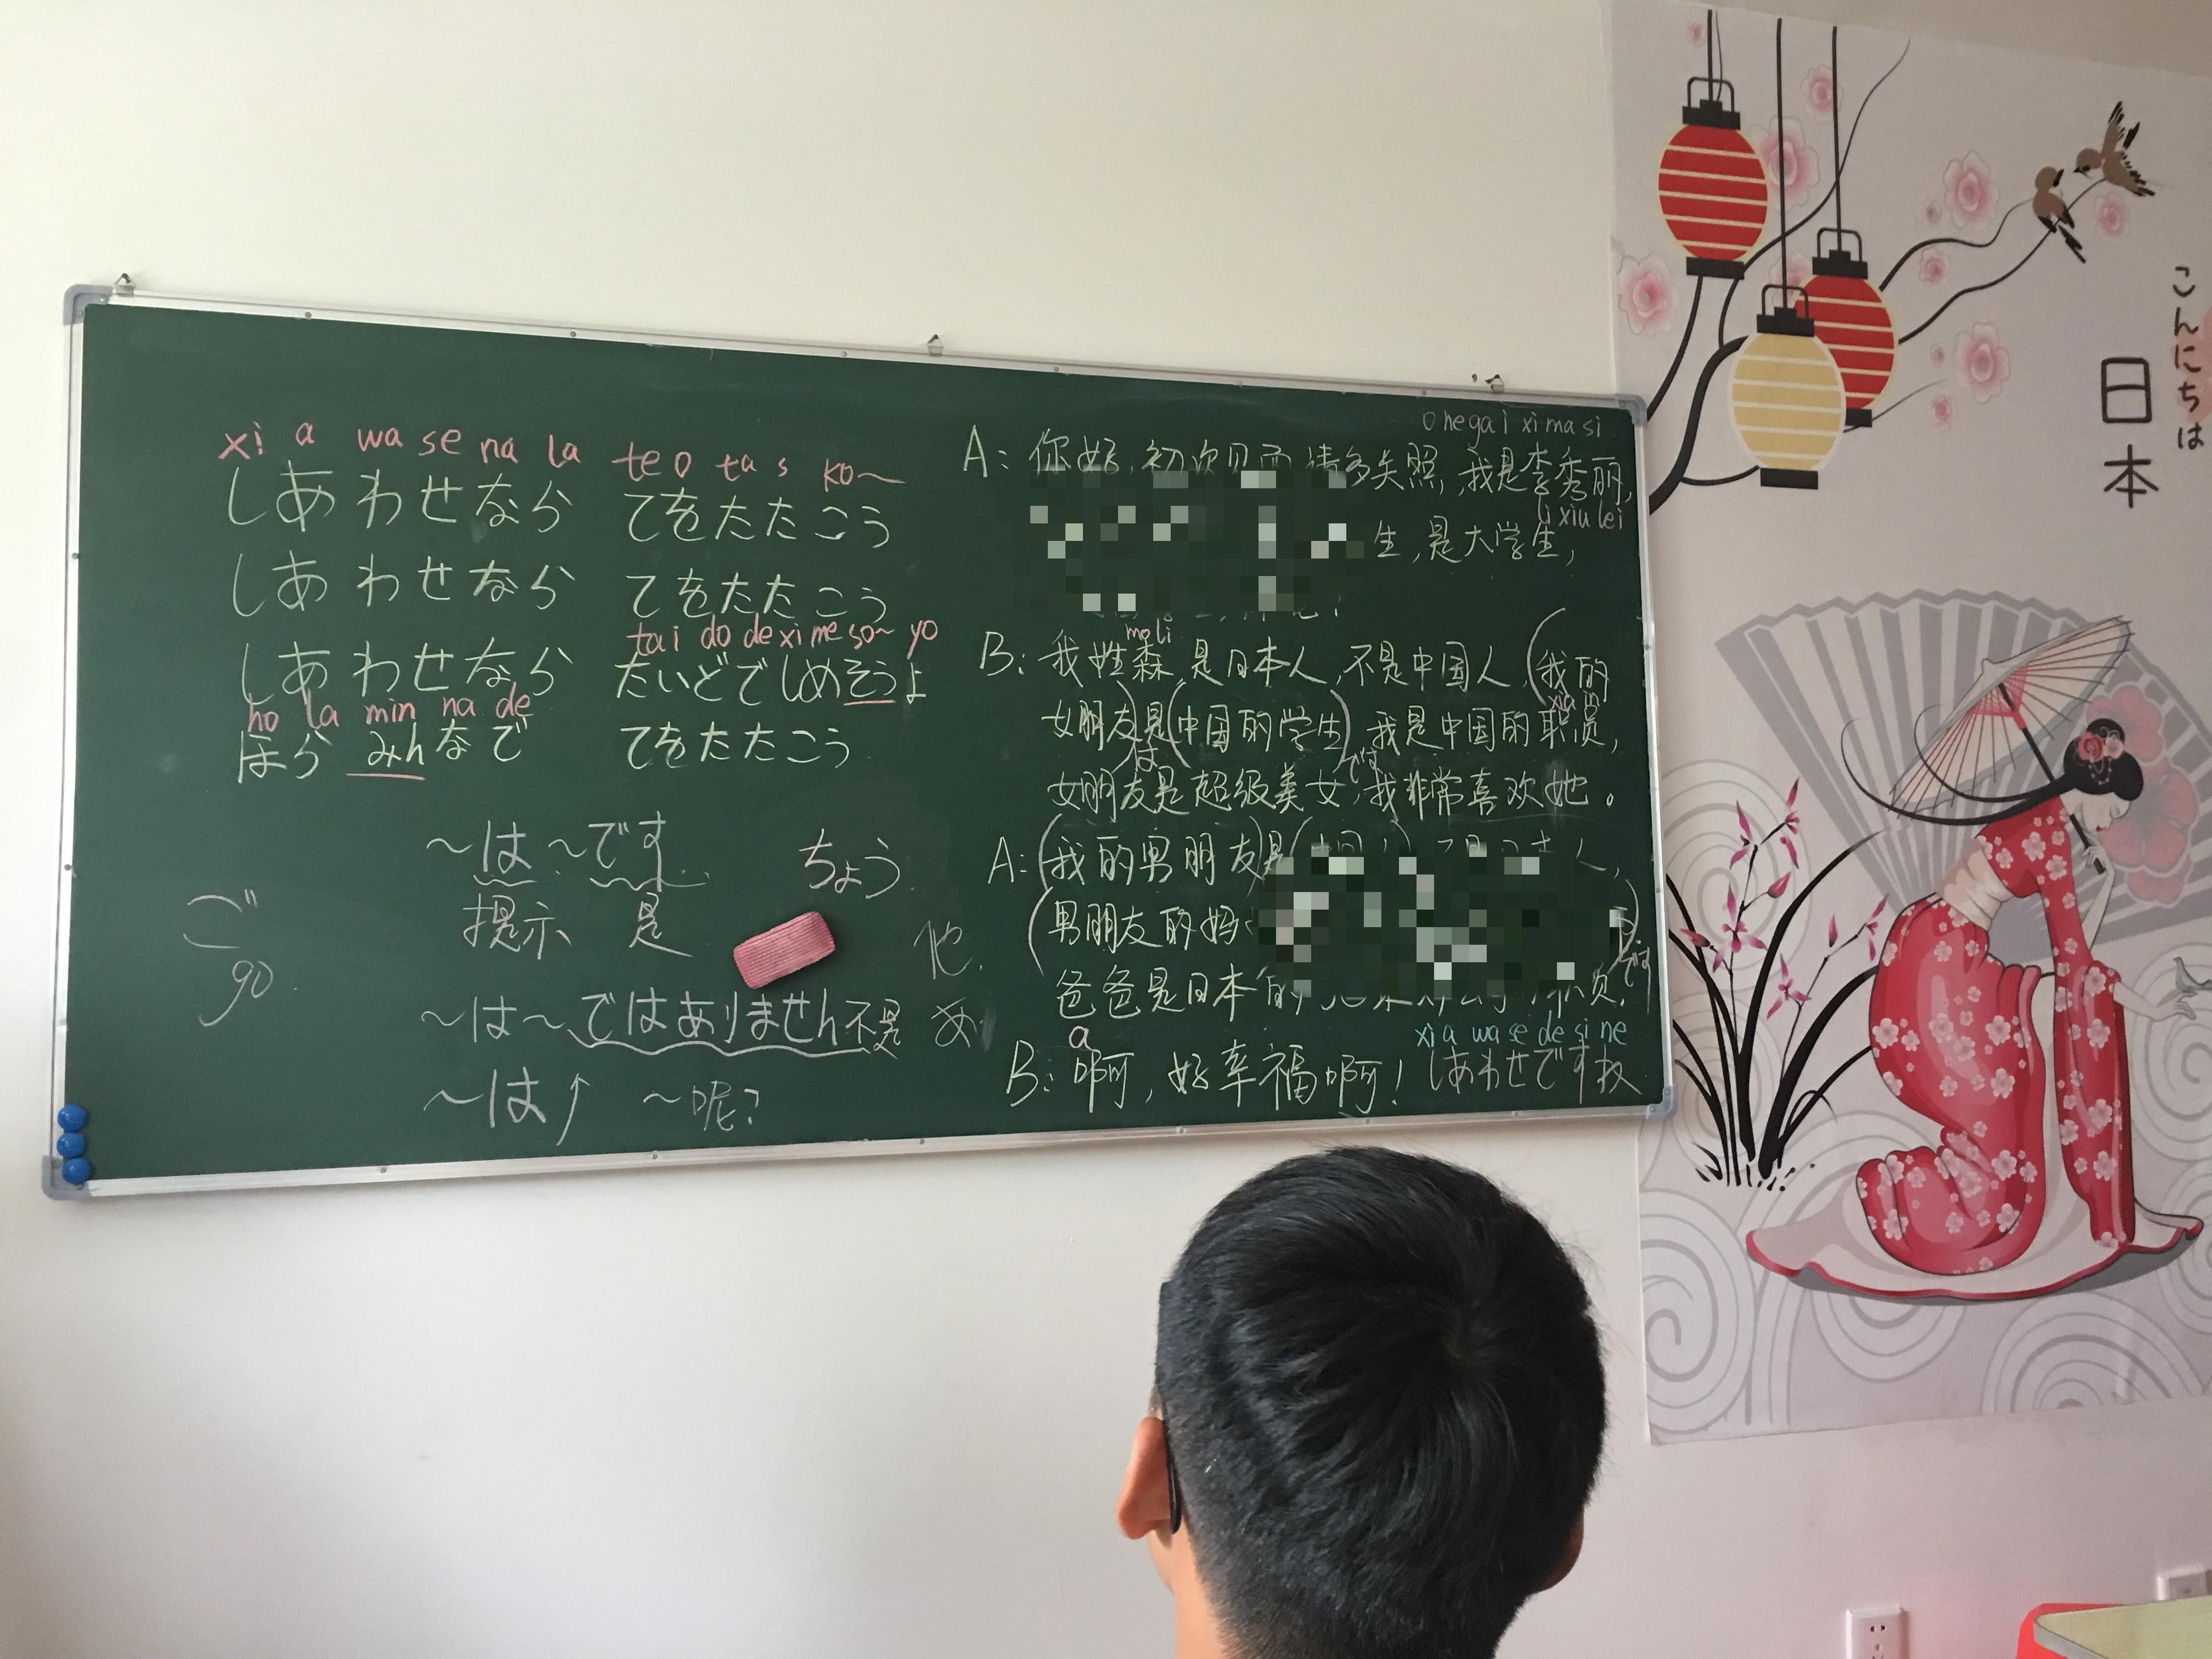 xi a wa se na la te o ta s ko~
しあわせなら てをたたこう
しあわせなら てをたたこう
tai do de xi me so~ yo
しあわせなら たいどでしめそうよ
ho la min na de
ほら みんなで てをたたこう
~は~です ちょう
提示 是
ご
go
他
~は~ ではありません 不是
~は↑ ~呢?
o ne ga i xi ma si
A: 你好,初次见面请多关照,我是李秀丽,
li xiu lei
生,是大学生,
mo li
B: 我姓森,是日本人,不是中国人,(我的
xia in
女朋友)是(中国的学生),我是中国的职员,
は です
女朋友是超级美女,我非常喜欢她。
A: (我的男朋友)是(
(男朋友的妈
です
爸爸是日本的 员.
a xi a wa se de si ne
B: 啊,好幸福啊! しあわせですね
こんにちは
日本